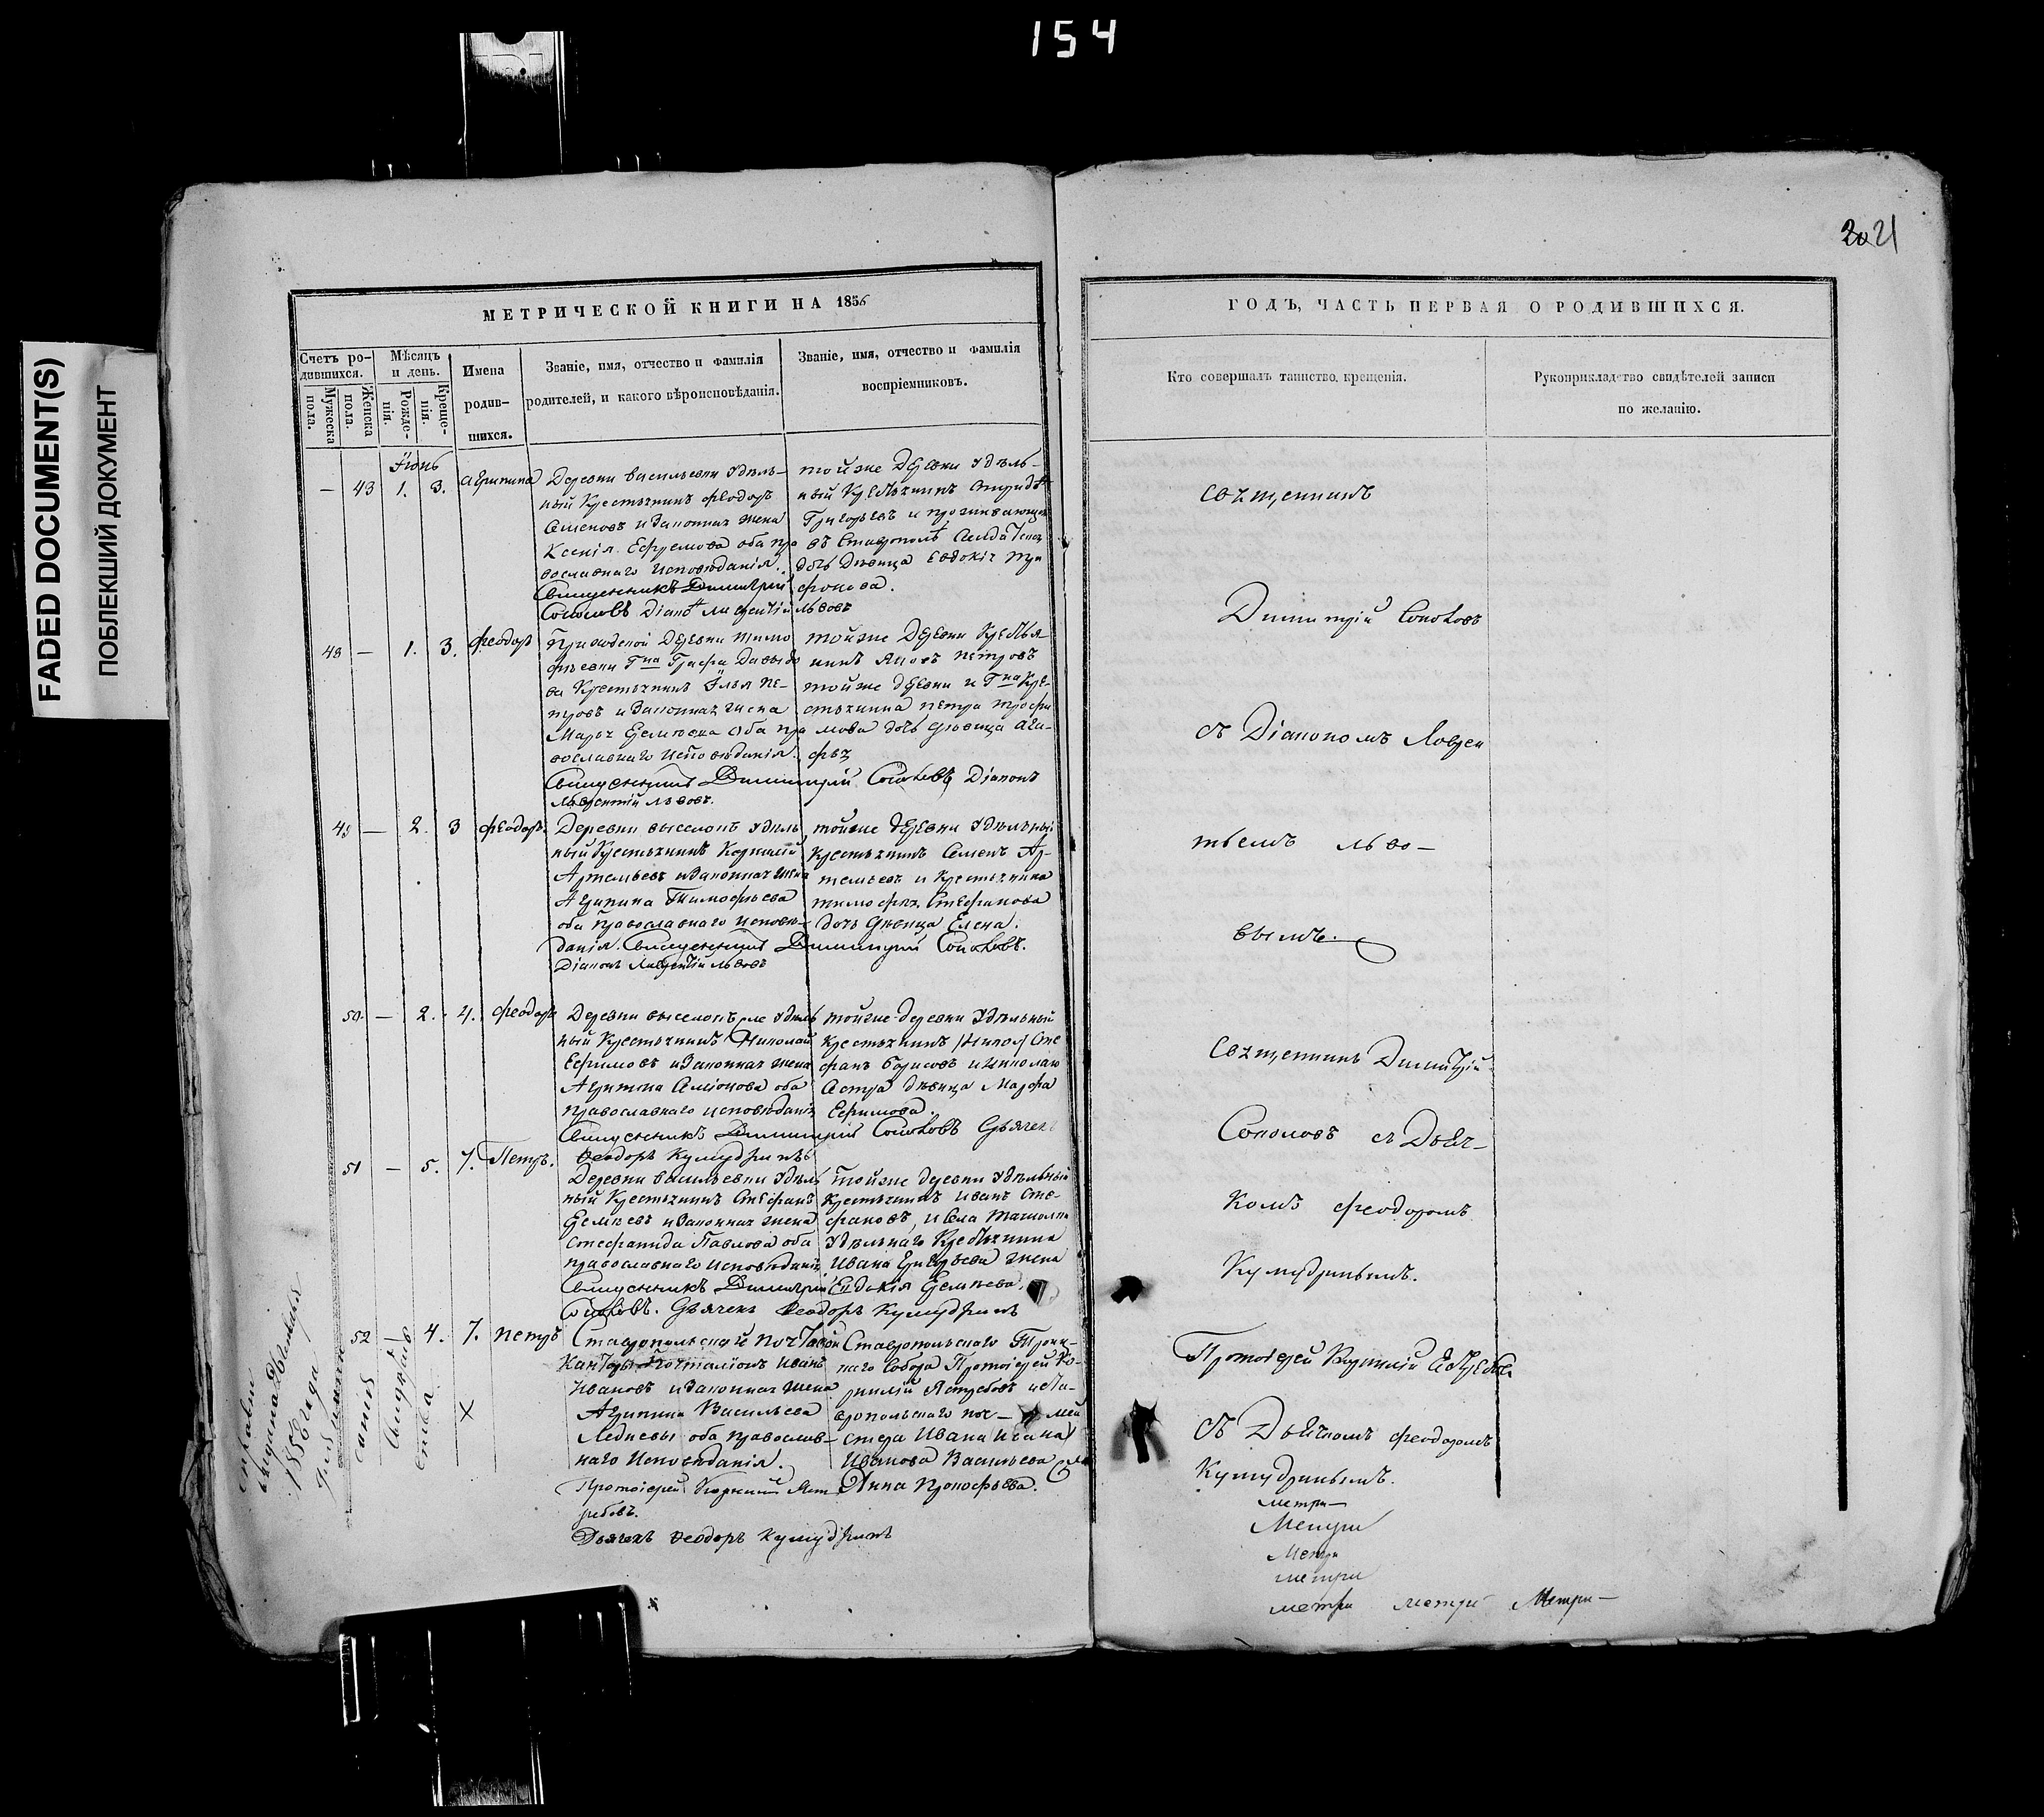 154
FADED DOCUMENT(S)
ПОБЛЕКШИЙ ДОКУМЕНТ
21
МЕТРИЧЕСКОЙ КНИГИ НА 1856
Счетъ ро-
дившихся.
Мѣсяцъ
и день.
Имена
родив-
шихся.
Званіе, имя, отчество и фамилія
родителей, и какого вѣроисповѣданія.
Званіе, имя, отчество и фамилія
воспріемниковъ.
Мужеска
пола.
Женска
пола.
Рожде-
нія.
Креще-
нія.
Іюнь
— 43 1. 3. Агрипина
Деревни Васильевки Удѣль-
ный Крестьянинъ Феодоръ
Семеновъ и Законная жена
Ксенія Ефремова оба пра
вославнаго Исповѣданія.
Священникъ Димитрій
Соколовъ Діаконъ Лаврентій Львовъ
тойже Деревни Удѣль-
ный Крестьянинъ
Григорьевъ и проживающая
въ Ставрополѣ
дочь Дѣвица Евдокія Три
фонова.
48 — 1. 3. Феодоръ
Приходской Деревни Тимо
фѣевки Гна Графа Давыдо
ва Крестьянинъ Илья Пе-
тровъ и Законная жена
Марья Еремѣева Оба пра
вославнаго Исповѣданія.
Священникъ Димитрій Соколовъ Діаконъ
Лаврентій Львовъ.
тойже Деревни Крестья
нинъ Яковъ Петровъ
тойже деревни и Гна Кре-
стьянина Петра Трофи
мова дочь дѣвица Ага-
фья
49 — 2. 3 Феодоръ.
Деревни выселокъ Удѣль
ный Крестьянинъ Корнилій
Артемьевъ и Законная жена
Агрипина Тимофѣева
оба Православнаго исповѣ-
данія. Священникъ Димитрій Соколовъ.
Діаконъ Лаврентій Львовъ
тойже деревни Удѣльный
Крестьянинъ Семенъ Ар-
темьевъ и Крестьянина
Тимофея Стефанова
дочь дѣвица Елена.
50. — 2. 4. Феодоръ
Деревни выселокъ Удѣль
ный Крестьянинъ Николай
Ефимовъ и Законная жена
Агрипина Симіонова оба
православнаго исповѣданія
Священникъ Димитрій Соколовъ Дьячекъ
Феодоръ Кумудринъ
тойже деревни Удѣльный
крестьянинъ Сте
фанъ Борисовъ и Николая
Сестра дѣвица Марфа
Ефимова.
51 — 5. 7. Петръ.
Деревни Васильевки Удѣль
ный Крестьянинъ Стефанъ
Еремѣевъ и Законная жена
Стефанида Павлова оба
православнаго исповѣданія
Священникъ Димитрій
Соколовъ. Дьячекъ Феодоръ Кумудринъ
тойже деревни Удѣльный
Крестьянинъ Иванъ Сте-
фановъ, и Села
Удѣльнаго Крестьянина
Ивана Григорьева жена
Евдокія Еремѣева.
52 — 4. 7. Петръ
Ставропольской Почтовой
Канторы Почталіонъ Иванъ
Ивановъ и Законная жена
Агрипина Васильева
Ледневы оба православ-
наго Исповѣданія.
Протоіерей Корнилій Яст
ребовъ.
Дьячекъ Феодоръ Кумудринъ
Ставропольскаго Троиц-
каго Собора Протоіерей Ко-
рнилій Ястребовъ и Ста-
вропольскаго пос-
Анна Прокофьева.
1856 года
ГОДЪ, ЧАСТЬ ПЕРВАЯ О РОДИВШИХСЯ.
Кто совершалъ таинство крещенія.
Рукоприкладство свидѣтелей записи
по желанію.
Священникъ
Димитрій Соколовъ
съ Діакономъ Лаврен
тьемъ Льво-
вымъ.
Священникъ Димитрій
Соколовъ съ Дьяч-
комъ Феодоромъ
Кумудринымъ.
Протоіерей Корнилій Ястребовъ
съ Дьячкомъ Феодоромъ
Кумудринымъ.
метри-
Метри
Метри
метри
метри метри Метри-